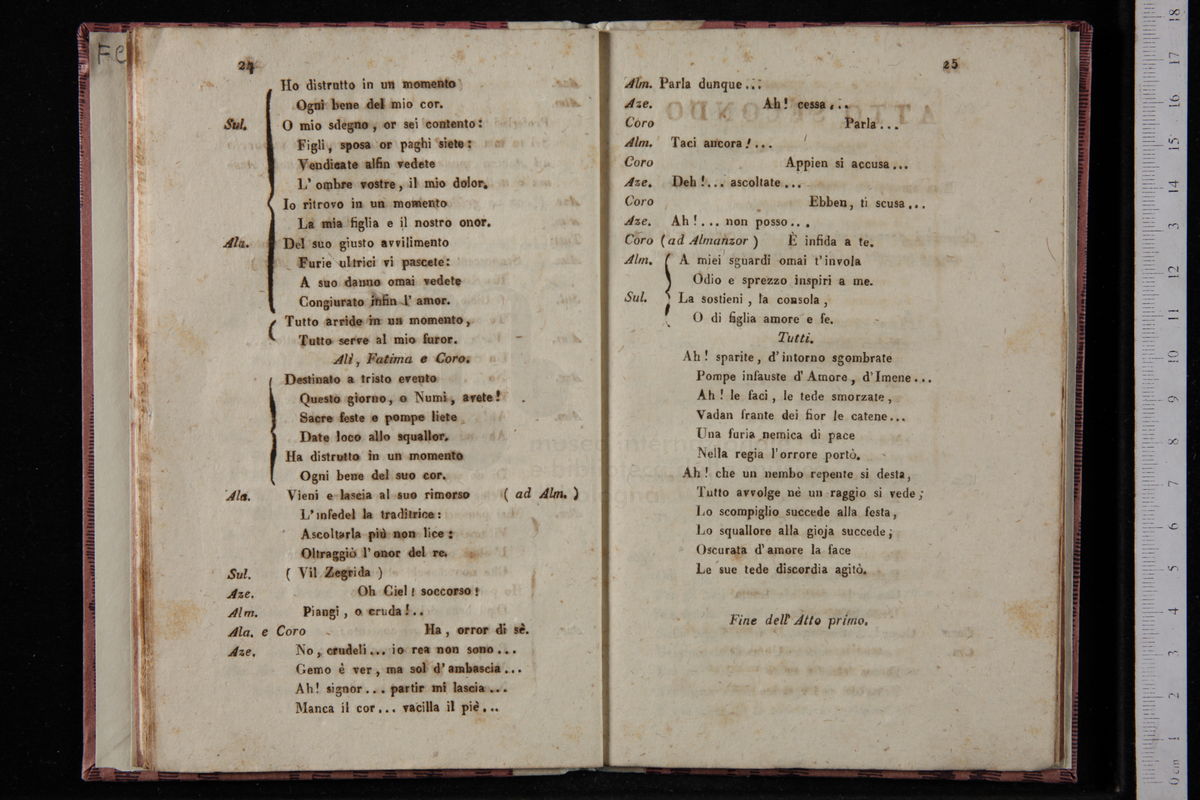 FC
24
Ho distrutto in un momento
Ogni bene del mio cor.
Sul. O mio sdegno, or sei contento:
Figli, sposa or paghi siete:
Vendicate alfin vedete
L' ombre vostre, il mio dolor.
Io ritrovo in un momento
La mia figlia e il nostro onor.
Ala. Del suo giusto avvilimento
Furie ultrici vi pascete:
A suo danno omai vedete
Congiurato infin l' amor.
Tutto arride in un momento,
Tutto serve al mio furor.
Alì, Fatima e Coro.
Destinato a tristo evento
Questo giorno, o Numi, avete!
Sacre feste e pompe liete
Date loco allo squallor.
Ha distrutto in un momento
Ogni bene del suo cor.
Ala. Vieni e lascia al suo rimorso ( ad Alm. )
L' infedel la traditrice:
Ascoltarla più non lice:
Oltraggiò l' onor del re.
Sul. ( Vil Zegrida )
Aze. Oh Ciel! soccorso!
Alm. Piangi, o cruda!..
Ala. e Coro Ha, orror di sè.
Aze. No, crudeli... io rea non sono...
Gemo è ver, ma sol d' ambascia...
Ah! signor... partir mi lascia...
Manca il cor... vacilla il piè...
25
Alm. Parla dunque...
Aze. Ah! cessa...
Coro Parla...
Alm. Taci ancora!...
Coro Appien si accusa...
Aze. Deh!... ascoltate...
Coro Ebben, ti scusa...
Aze. Ah!... non posso...
Coro (ad Almanzor) È infida a te.
Alm. A miei sguardi omai t' invola
Odio e sprezzo inspiri a me.
Sul. La sostieni, la consola,
O di figlia amore e fe.
Tutti.
Ah! sparite, d' intorno sgombrate
Pompe infauste d' Amore, d' Imene...
Ah! le faci, le tede smorzate,
Vadan frante dei fior le catene...
Una furia nemica di pace
Nella regia l' orrore portò.
Ah! che un nembo repente si desta,
Tutto avvolge nè un raggio si vede;
Lo scompiglio succede alla festa,
Lo squallore alla gioja succede;
Oscurata d' amore la face
Le sue tede discordia agitò.
Fine dell' Atto primo.